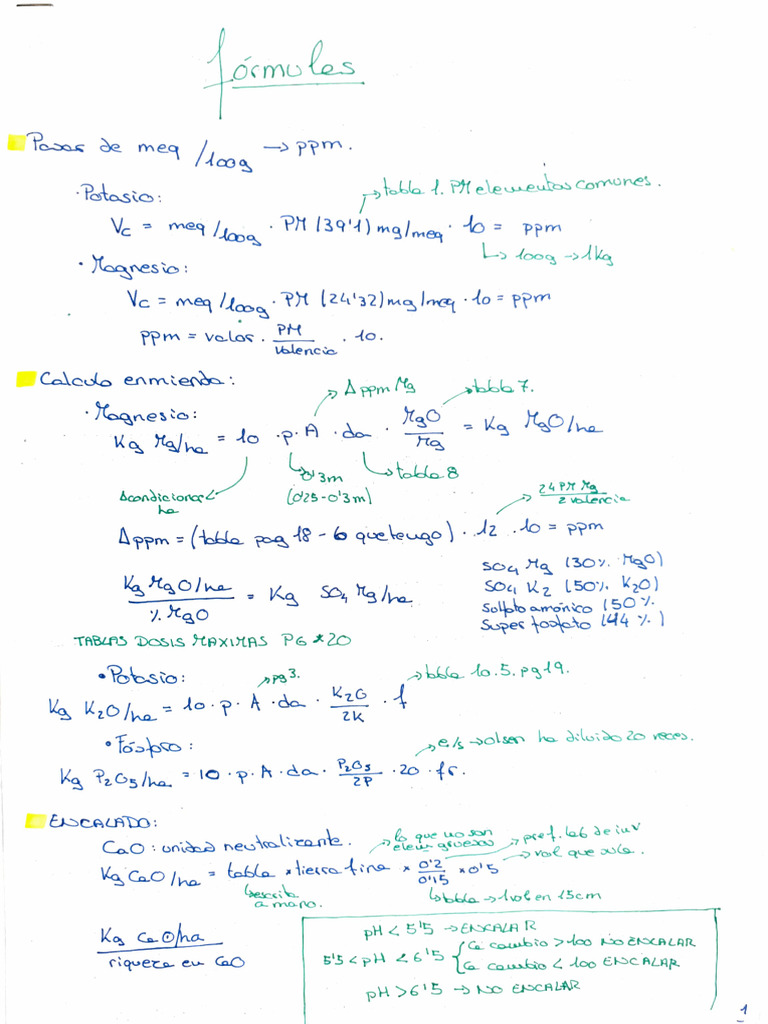 fórmules
Pasar de meq/100g → ppm.
→ tabla 1. PM elementos comunes.
· Potasio:
Vc = meq/100g · PM (39'1) mg/meq · 10 = ppm
↳ 100g → 1Kg
· Magnesio:
Vc = meq/100g · PM (24'32) mg/meq · 10 = ppm
ppm = valor · PM/valencia · 10.
Calculo enmienda:
Δppm Mg
→ tabla 7.
· Magnesio:
Kg Mg/ha = 10 · p · A · da · MgO/Mg = Kg MgO/ha
0'3m
tabla 8
(0'25-0'3m)
Acondicionar
ha
24 PM Mg
2 valencia
Δppm = (tabla pag 18 - 6 que tengo) · 12 · 10 = ppm
Kg MgO/ha / % MgO = Kg SO4 Mg/ha
SO4 Mg (30% MgO)
SO4 K2 (50% K2O)
Sulfato amónico (50%
Super fosfato (44%)
TABLAS DOSIS MAXIMAS PG * 20
· Potasio:
→ pg 3.
→ tabla 10.5. pg 19.
Kg K2O/ha = 10 · p · A · da · K2O/2K · f
· Fósforo:
→ e/s → olsen ha diluido 20 veces.
Kg P2O5/ha = 10 · p · A · da · P2O5/2P · 20 · fr.
ENCALADO:
CaO: unidad neutralizante.
→ lo que no son
elem gruesos
→ prof.
→ vol que
Kg CaO/ha = tabla * tierra fina * 0'2/0'15 * 0'5
↳ escrita
a mano.
↳ tabla → 1 vol en 15cm
Kg CaO/ha
riqueza en CaO
pH < 5'5 → ENCALAR
5'5 < pH < 6'5 { Ca cambio > 100 NO ENCALAR
Ca cambio < 100 ENCALAR
pH > 6'5 → NO ENCALAR
1